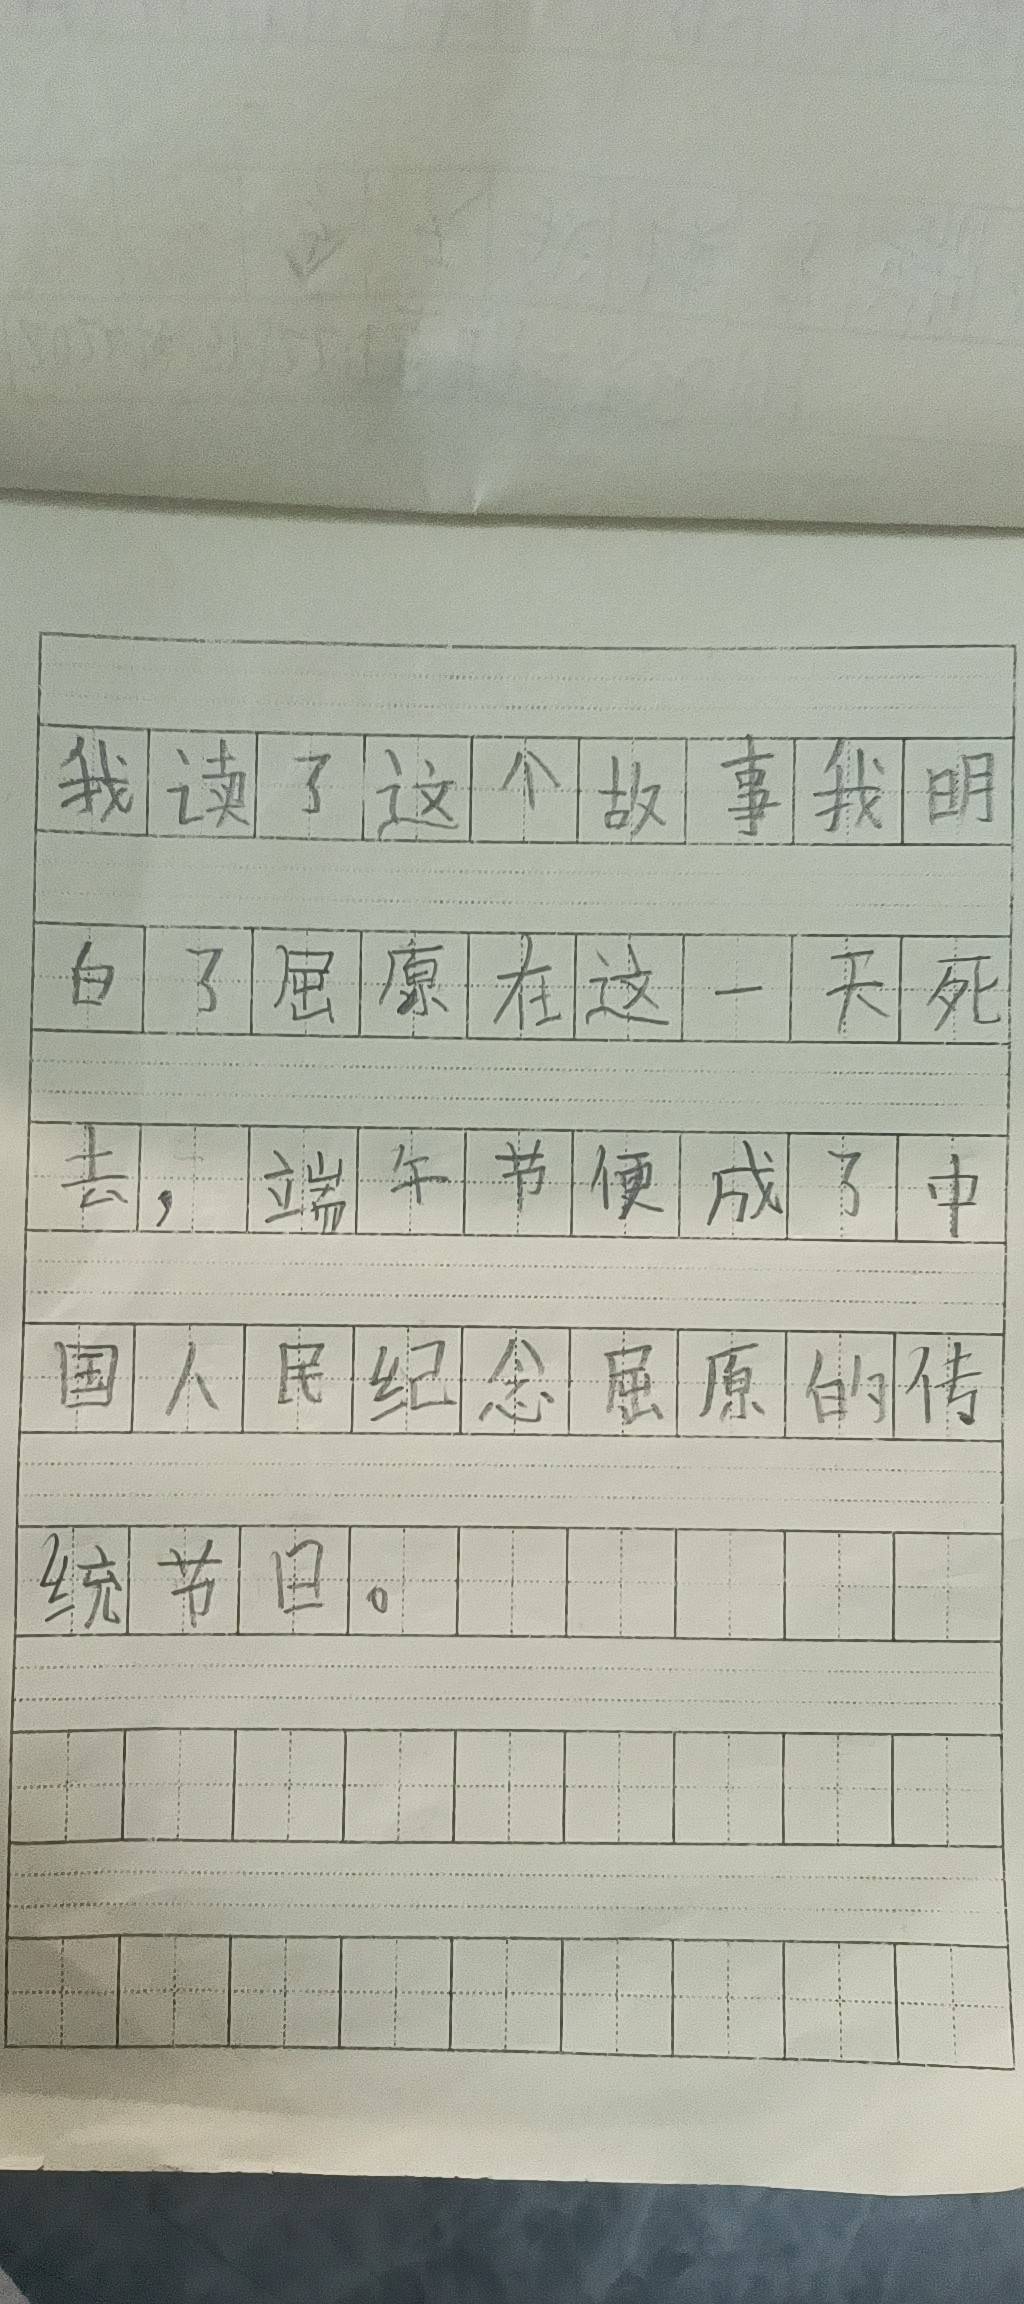 我读了这个故事我明
白了屈原在这一天死
去，端午节便成了中
国人民纪念屈原的传
统节日。